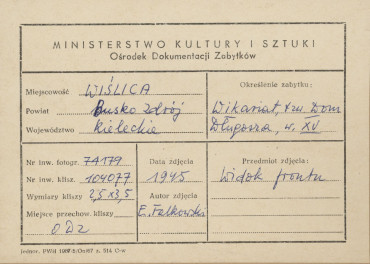 MINISTERSTWO KULTURY I SZTUKI
Ośrodek Dokumentacji Zabytków
Miejscowość WIŚLICA
Powiat Busko Zdrój
Województwo kieleckie
Określenie zabytku:
Wikariat, tzw. Dom
Długosza, w. XV
Nr inw. fotogr. 74179
Nr inw. klisz. 104077
Wymiary kliszy 2,5 x 3,5
Miejsce przechow. kliszy
ODZ
Data zdjęcia
1945
Autor zdjęcia
E. Falkowski
Przedmiot zdjęcia:
Widok frontu